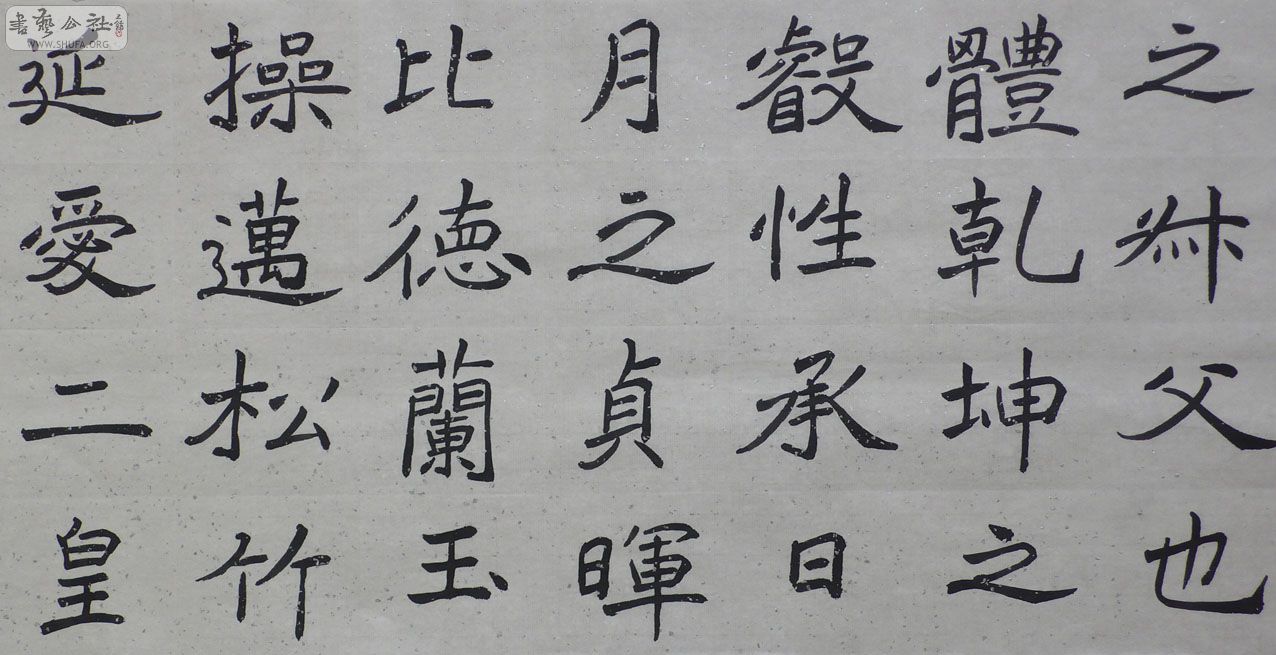 之叔父也
體乾坤之
叡性承日
月之貞暉
比德蘭玉
操邁松竹
延愛二皇
書藝公社
WWW.SHUFA.ORG